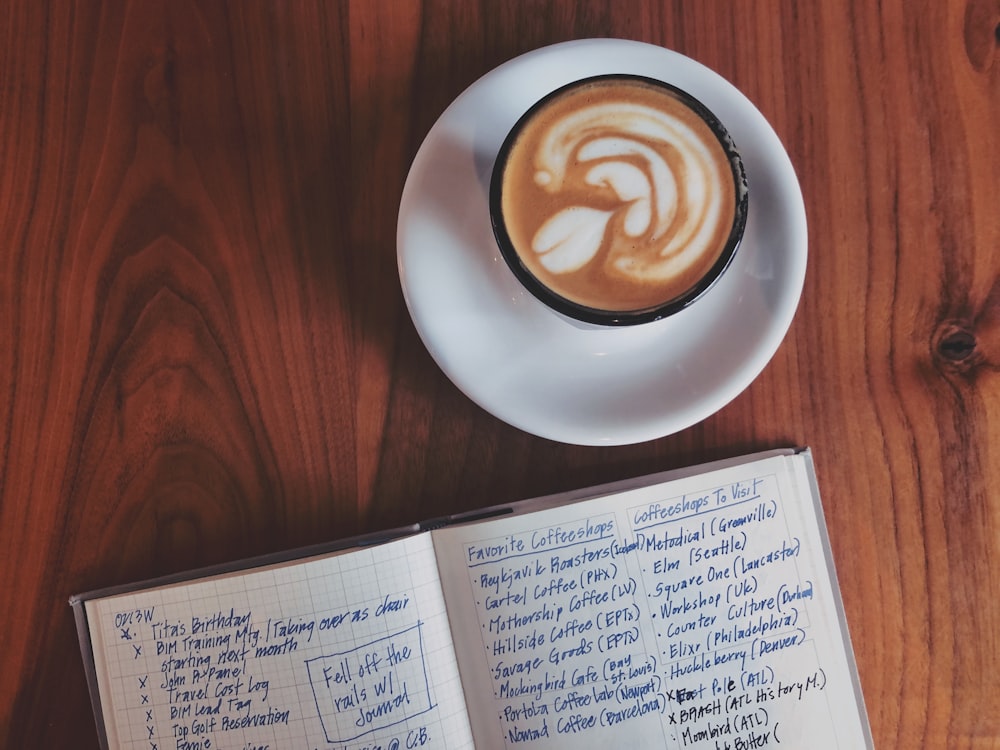 Tita's Birthday
BIM Training Mtg. / Taking over as chair
starting next month
John A. Panel
Travel Cost Log
BIM Lead Tag
Top Golf Reservation
Fell off the
rails w/
Journal
@ C.B.
Favorite Coffeeshops
· Reykjavik Roasters (Iceland)
· Cartel Coffee (PHX)
· Mothership Coffee (LV)
· Hillside Coffee (EPTS)
· Savage Goods (EPTS)
· Mockingbird Cafe (Bay St. Louis)
· Portola Coffee Lab (Newport)
· Nomad Coffee (Barcelona)
Coffeeshops To Visit
Metodical (Greenville)
· Elm (Seattle)
· Square One (Lancaster)
· Workshop (UK)
· Counter Culture (Durham)
· Elixr (Philadelphia)
· Huckleberry (Denver)
x East Pole (ATL)
x BRASH (ATL History M.)
· Moonbird (ATL)
Butter (